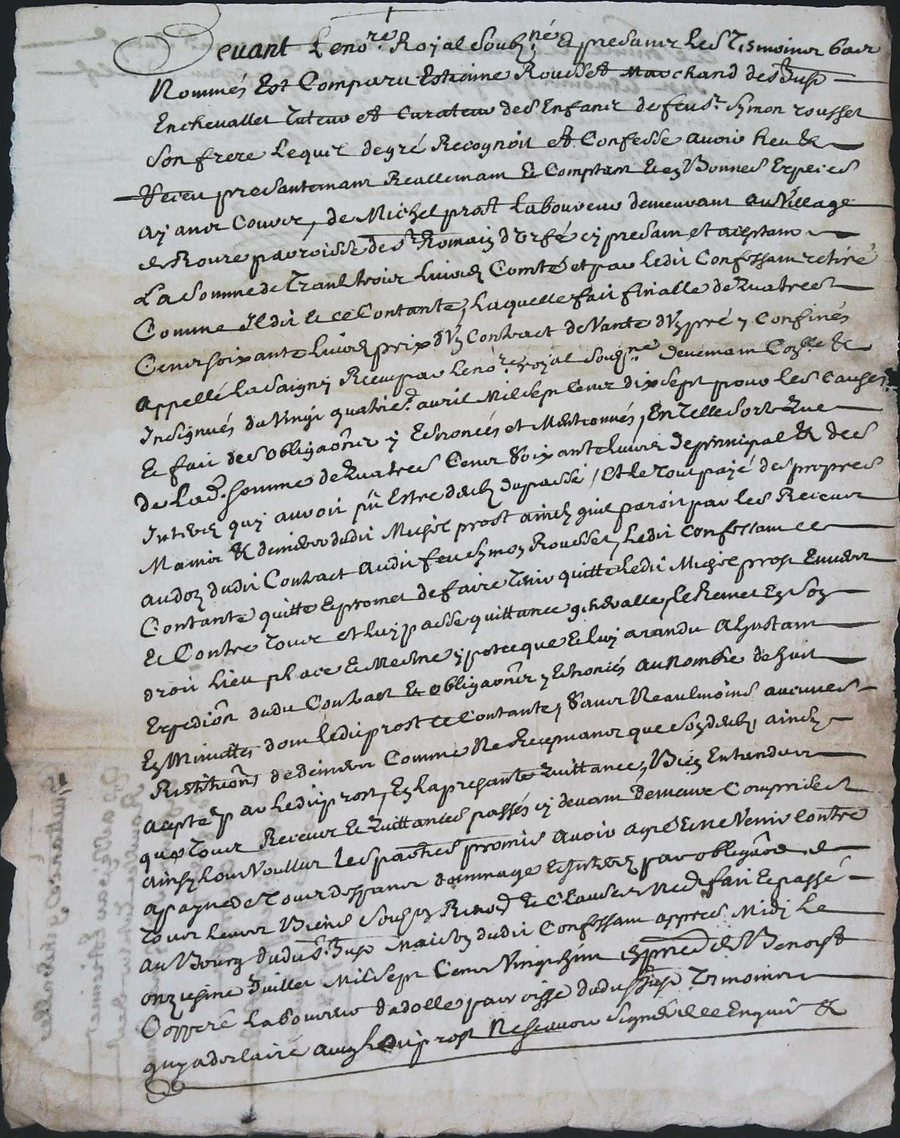 Devant Le no.re Royal Soub.né Et presants les Tesmoins bas
Nommés Est Comparu Estienne Rousset Marchand de St Just
En chevallet Tuteur et Curateur des Enfants de feu sr Symon rousset
Son frere Lequel de gré Recognoit et Confesse avoir heu &
Receu presantemant Reallemant Et Comptant En Bonnes Expeces
ayants Cours, de Michel prost Laboureur demeurant au Village
de Roure parroisse de St Romain d'Urfé cy presant et aceptant
La somme de Trante trois Livres Comte et par ledit Confessant retiré
Comme Il dit Et ce Contante, Laquelle fait finalle de quatres
Cents soixante Livres prix d'un Contract de Vante d'un pré y Confinés
appellé La Saigny Receu par Le no.re royal soubgné devemant &
Insignués du Vingt quatrie.e avril Mil sept Cents dix sept pour les Causes
Et fait des obligaõns y Enoncés et Mentionnés, En Telle sorte que
de La d. somme de quatres Cents Soixante Livres de principal & des
Interests quy auroit pu Estre deubs du passé, Et le tout payé des propres
Mains & deniers dudit Michel prost ainsy quil paroit par les Receus
au dos dudit Contract audit feu Symon Rousset, Ledit Confessant ce
Contante quitte Et promet de faire Tenir quitte Ledit Michel prost Envers
Et Contre Tous et luy passe quittance g.nerralle, Le Remet En son
droit Lieu place Et Mesme ypoteque Et luy a randu a L'Instant
Expedion dudit Contract Et obligaõns y Enoncés au Nombre de huit
En Minuttes dont Ledit prost ce Contante, Sans Neaulmoins aucunes
Restitution de deniers Comme Ne Recepvant que son deub, ainsy
acepté par Ledit prost, En La presante quittance, Bien Entendu
que Tous Receus Et quittances passés cy devant Demeure Comprise
ainsy L'ont Voullus Les parties promis avoir agré Et Ne Venir Contre
a payne de Tous despans dommage Et Interests par obligaõn de
Tous Leurs Biens Soubs Renon. Et Clauses Necess. fait Et passé
au Bourg dudit St Just Maison dudit Confessant appres Midy Le
onziesme Juillet Mil sept Cents Vingt En presance de Benoist
Cofferé Laboureur dadolle parroisse dudit St Just Tesmoins
quy a declairé avec Ledit prost Ne scavoir Signer de ce Enquis &